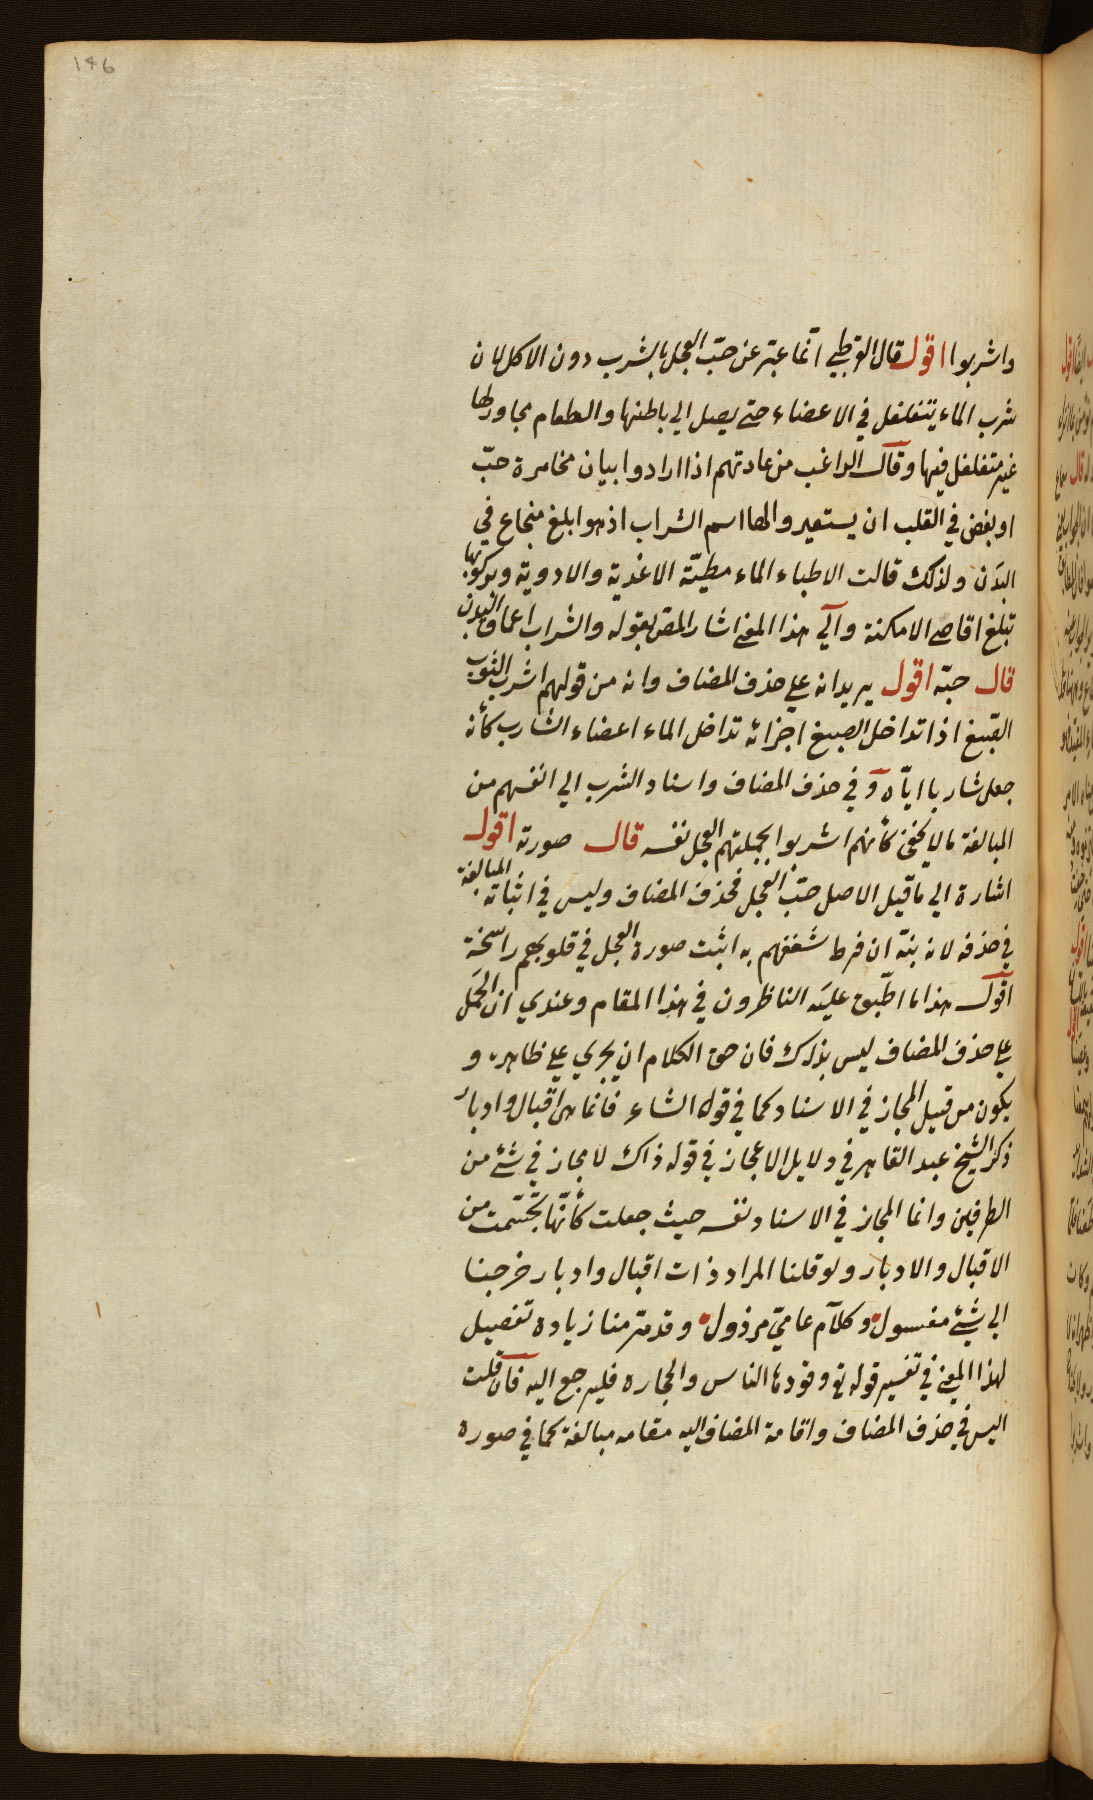 146
واشربوا اقول قال القرطبي انما عبّر عن حبّ العجل بالشرب دون الاكل لان
شرب الماء يتغلغل في الاعضاء حتى يصل الي باطنها والطعام مجاور لها
غير متغلغل فيها وقال الراغب من عادتهم اذا ارادوا بيان مخامرة حبّ
او بغض في القلب ان يستعير والها اسم الشراب اذ هو ابلغ منجاع في
البدن ولذلك قالت الاطباء الماء مطيّة الاغذية والادوية ومركوبها
تبلغ اقاصي الامكنة والي هذا المعنى اشار المص بقوله والشراب اعماق البدن
قال حبّه اقول يريد انه علي حذف المضاف وانه من قولهم اشرب الثوب
الصّبغ اذا تداخل الصبغ اجزائه تداخل الماء اعضاء الشارب كأنه
جعل شاربا ايّاه و في حذف المضاف واسناد الشرب الي انفسهم من
المبالغة ما لا يخفى كأنهم اشربوا بجملتهم العجل نفسه قال صورته اقول
اشارة الي ما قيل الاصل حبّ العجل فحذف المضاف وليس في اثباته المبالغة
في حذفه لانه بنّه ان فرط شغفهم به اثبت صورة العجل في قلوبهم راسخة
اقول هذا ما اطّبق عليَه الناظرون في هذا المقام وعندي ان الحَمل
علي حذف المضاف ليس بذلك فان حق الكلام ان يجري علي ظاهره و
يكون من قبيل المجاز في الاسناد كما في قوله الشاعر فانما هي اقبال وادبار
ذكر الشيخ عبد القاهر في دلايل الاعجاز في قوله ذاك لا مجاز في شئ من
الطرفين وانما المجاز في الاسناد نفسه حيث جعلت كأنّها تجّسّمت من
الاقبال والادبار ولو قلنا المراد ذات اقبال وادبار خرجنا
الي شئ مغسول وكلام عاميّ مرذول وقد مرّ منا زيادة تفصيل
لهذا المعنى في تفسير قوله تع وقودها الناس والحجارة فليرجع اليه فان قلت
اليس في حذف المضاف واقامة المضاف اليه مقامه مبالغة كما في صورة